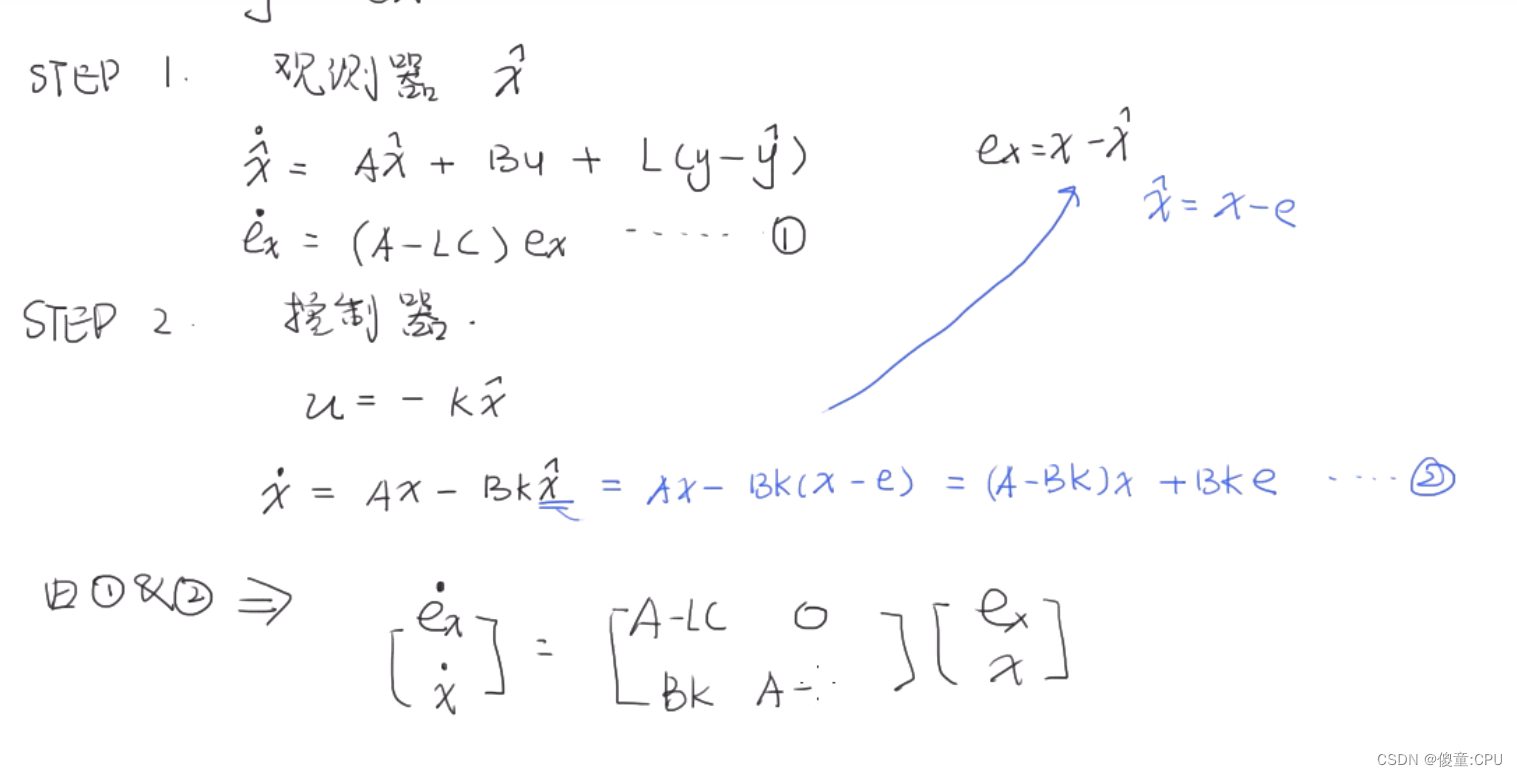 STEP 1. 观测器 x̂
x̂̇ = Ax̂ + Bu + L(y-ŷ)
eₓ=x-x̂
x̂ = x-e
ėₓ = (A-LC) eₓ ······ ①
STEP 2. 控制器.
u = - kx̂
ẋ = Ax - Bkx̂ = Ax- Bk(x-e) = (A-Bk)x +Bke ····· ②
由①&② ⇒ [ėₓ ẋ] = [A-LC 0 Bk A-∴] [eₓ x]
CSDN @傻童:CPU